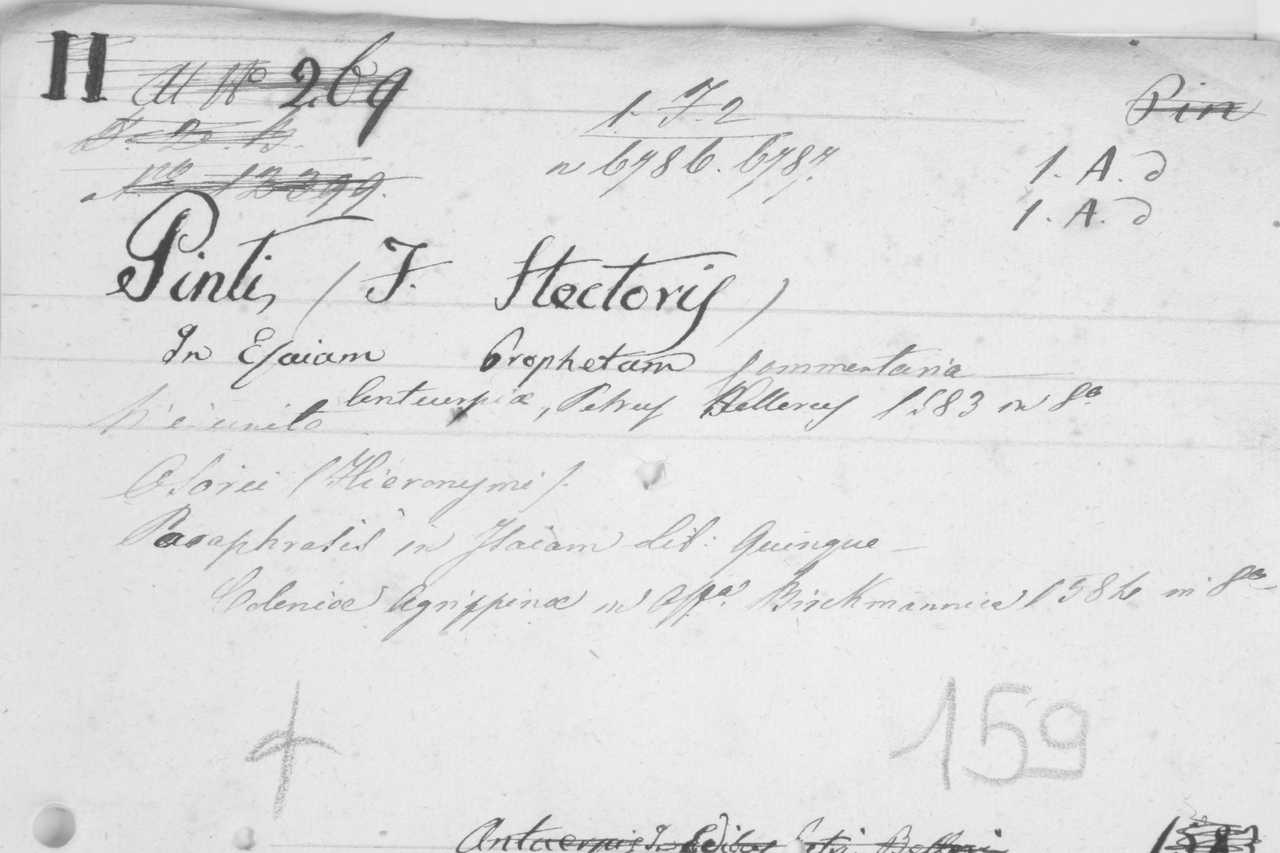 II 269
1. F. 2
Pin
n 6786. 6787.
N.º 12399.
1. A. d
1. A. d
Pinti, (F. Hectoris)
In Esaiam Prophetam Commentaria
Antuerpiæ, Petrus Bellerus 1583 in 8º
V'è unito
Osorii (Hieronymi).
Paraphrasis in Isaiam lib: Quinque
Coloniæ Agrippinæ in Offª. Birckmannica 1584 in 8º
159
Antuerpiæ In Ædibus Petri Belleri 1583